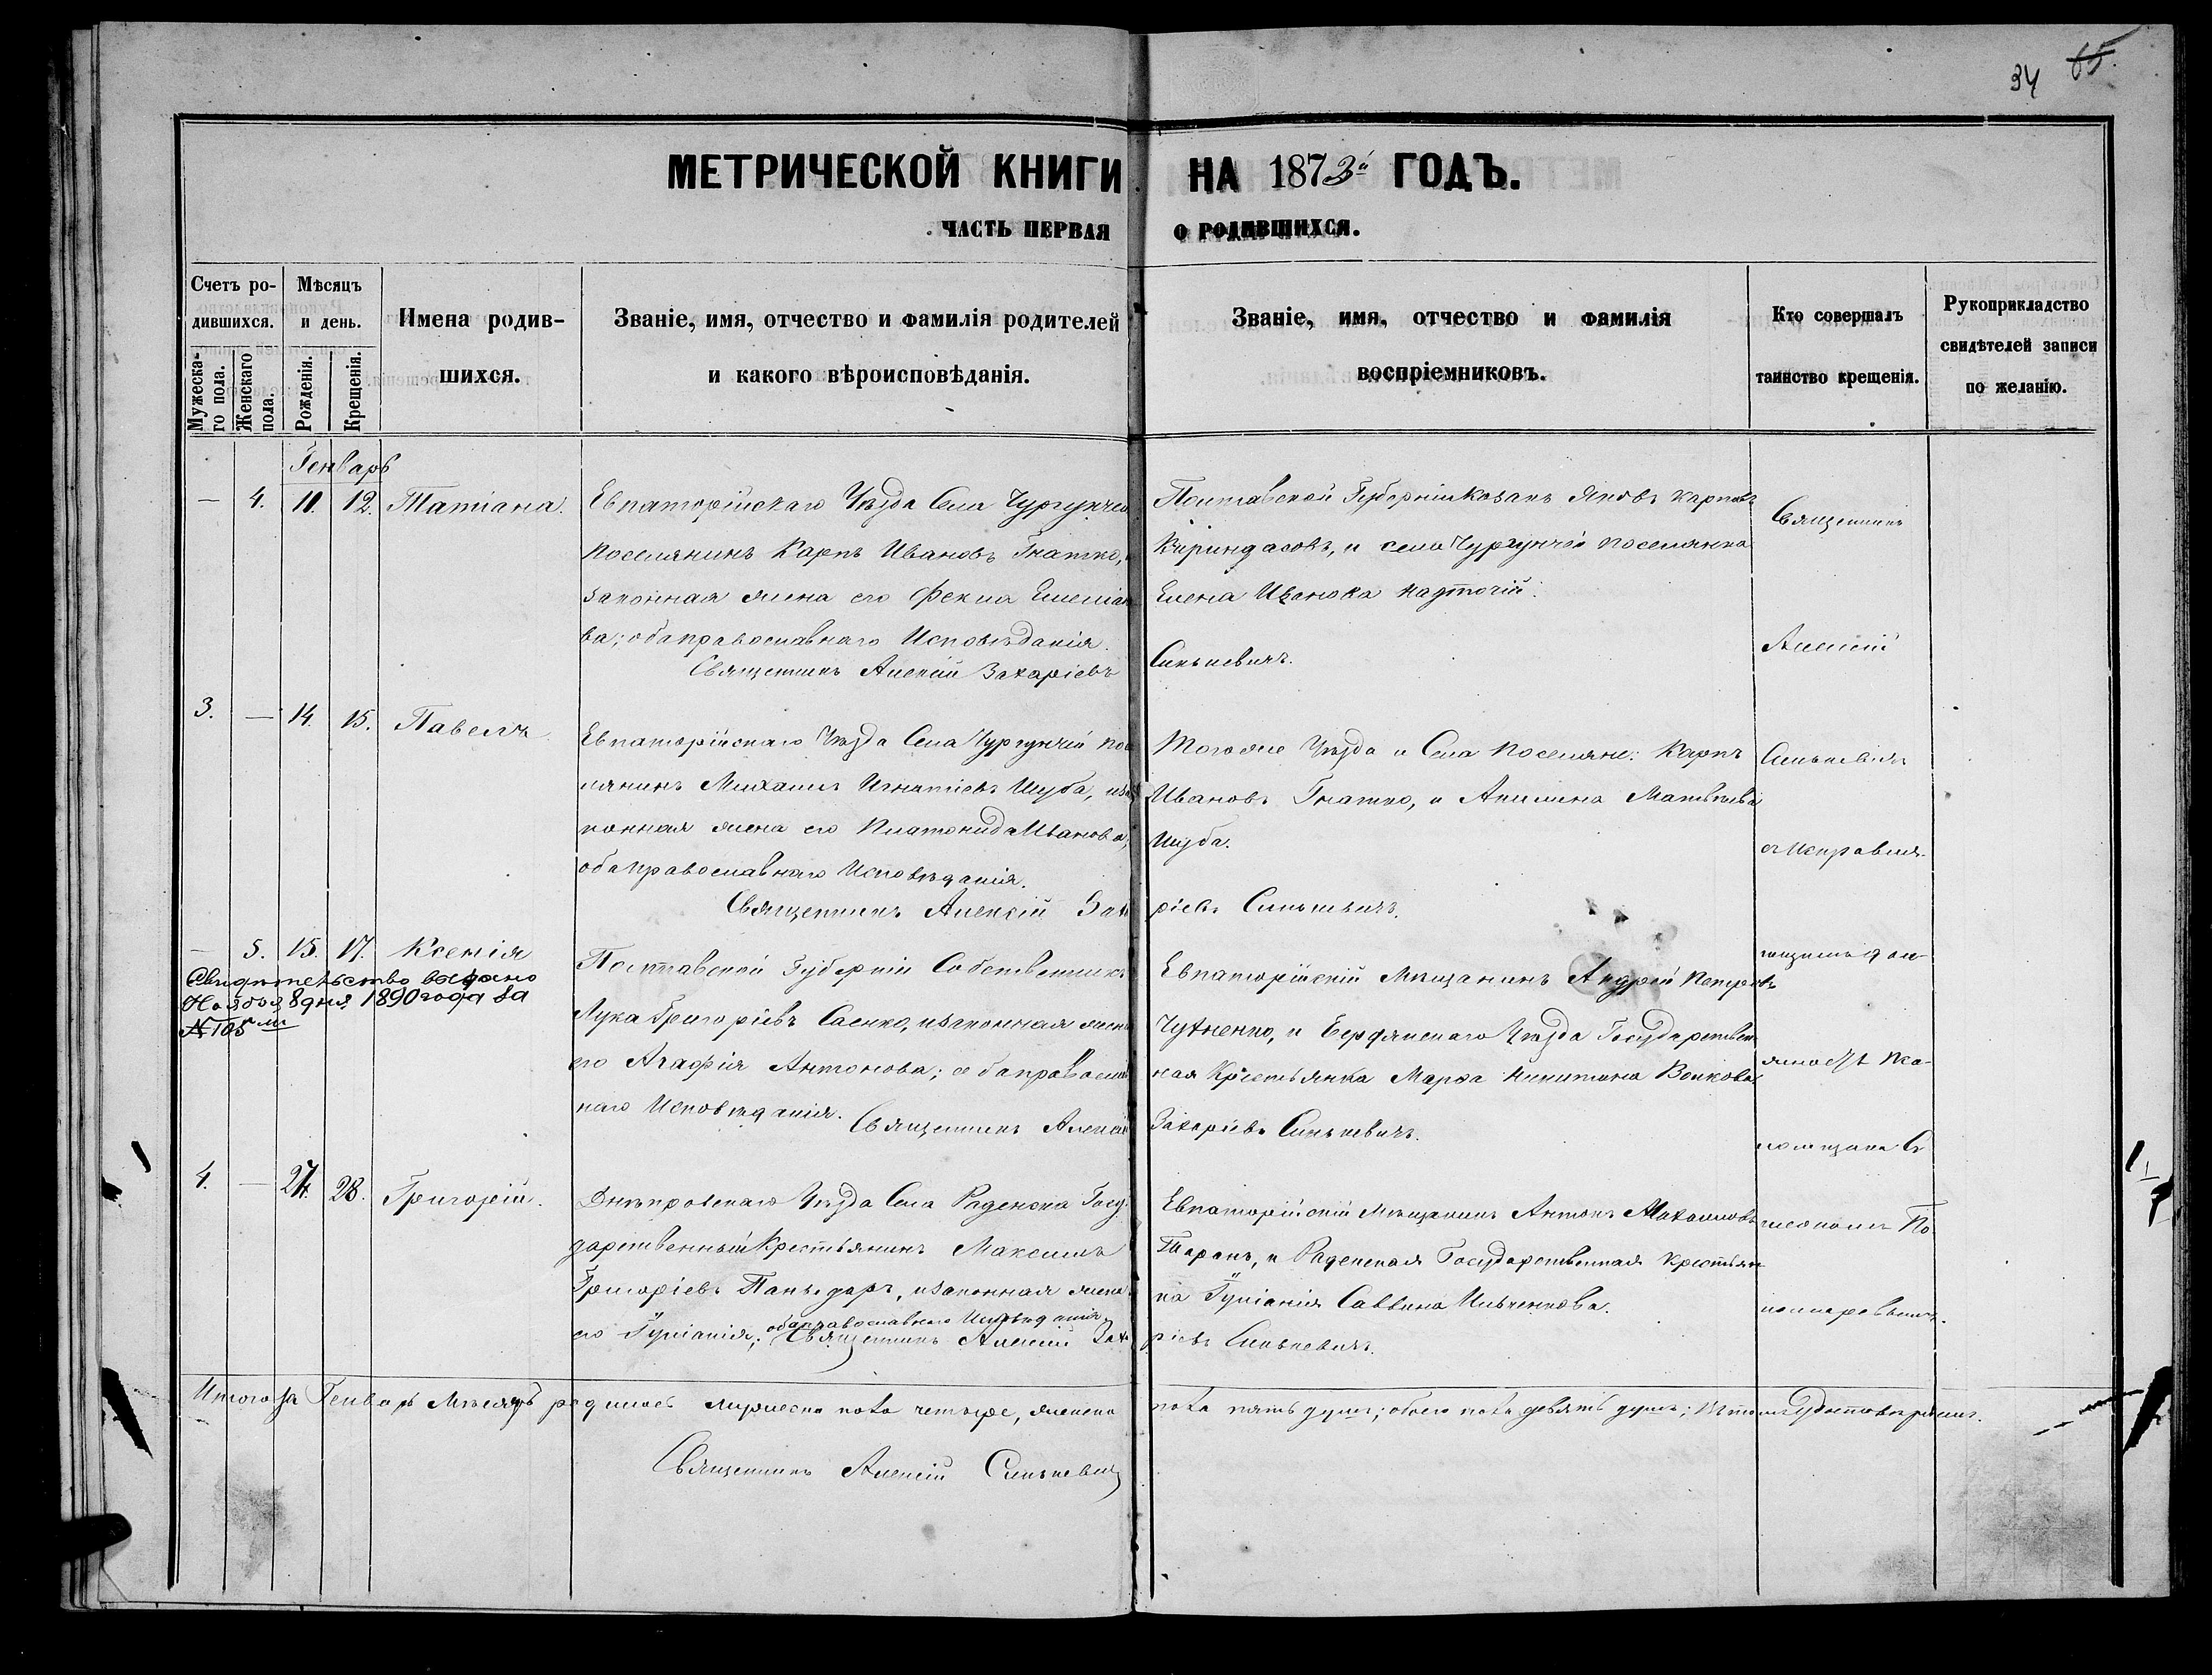 34 65.
МЕТРИЧЕСКОЙ КНИГИ НА 1873й ГОДЪ.
ЧАСТЬ ПЕРВАЯ О РОДИВШИХСЯ.
Счетъ ро-
дившихся.
Мужеска-
го пола.
Женскаго
пола.
Мѣсяцъ
и день.
Рожденія.
Крещенія.
Имена родив-
шихся.
Званіе, имя, отчество и фамилія родителей
и какого вѣроисповѣданія.
Званіе, имя, отчество и фамилія
воспріемниковъ.
Кто совершалъ
таинство крещенія.
Рукоприкладство
свидѣтелей записи
по желанію.
Генварь
— 4. 11. 12. Татіана.
Евпаторійскаго Уѣзда Села Чургунчи
поселянинъ Карпъ Ивановъ Гнатко, и
законная жена его Фекла Емеліано
ва; оба православнаго Исповѣданія.
Священникъ Алексій Захаріевъ
Полтавской Губерніи Козакъ Яковъ Карповъ
и села Чургунчи поселянка
Елена Иванова
Синькевичъ.
3. — 14. 15. Павелъ
Евпаторійскаго Уѣзда Села Чургунчи посе
лянинъ Михаилъ Игнатіевъ Шуба, и за
конная жена его Платонида Иванова;
оба православнаго Исповѣданія.
Священникъ Алексій Заха
Того же Уѣзда и Села поселяне: Карпъ
Ивановъ Гнатко, и Акилина Матвѣева
Шуба.
ріевъ Синькевичъ.
— 5. 15. 17. Ксенія
Свидѣтельство выдано
Ноября 8 дня 1890 года за
№ 105
Полтавской Губерніи Собственникъ
Лука Григоріевъ Саенко, и законная жена
его Агафія Антонова; оба православ
наго Исповѣданія. Священникъ Алексій
Евпаторійскій Мѣщанинъ Андрей Петровъ
и Бердянскаго Уѣзда Государствен
ная Крестьянка Марфа Никитина Волкова.
Захаріевъ Синькевичъ.
4. — 27. 28. Григорій.
Днѣпровскаго Уѣзда Села Раденска Госу
дарственный Крестьянинъ Максимъ
Григоріевъ и законная жена
его Іуліанія; оба православнаго Исповѣданія
Священникъ Алексій Заха
Евпаторійскій Мѣщанинъ Антонъ
Таранъ, и Раденская Государственная крестьян
ка Іуліанія Саввина Ильченкова.
ріевъ Синькевичъ.
Священникъ
Алексій
Синькевичъ
съ исправля
ющимъ дол
жность Пса
ломщика
Итого за Генварь Мѣсяцъ родилось мужеска пола четыре, женска
пола пять душъ; обоего пола девять душъ;
Священникъ Алексій Синькевичъ